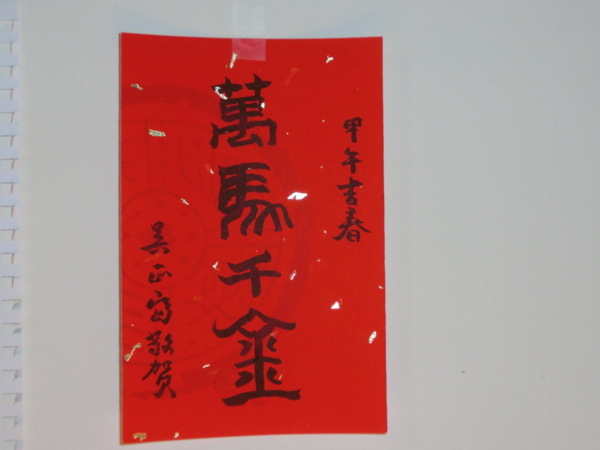 甲午書春
萬馬千金
吳正富敬賀